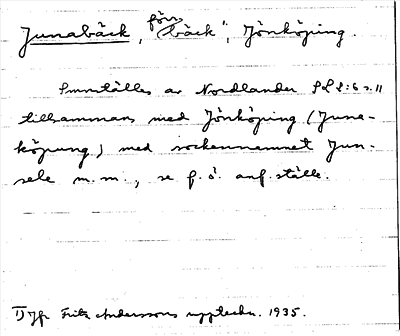 Junabäck, förr "bäck", Jönköping.
Smnställes av Nordlander
tillsammans med Jönköping (June-
köpung) med sockennamnet Jun-
sele m.m., se f. ö. anf. ställe.
1) Jfr Fritz Anderssons uppteckn. 1935.